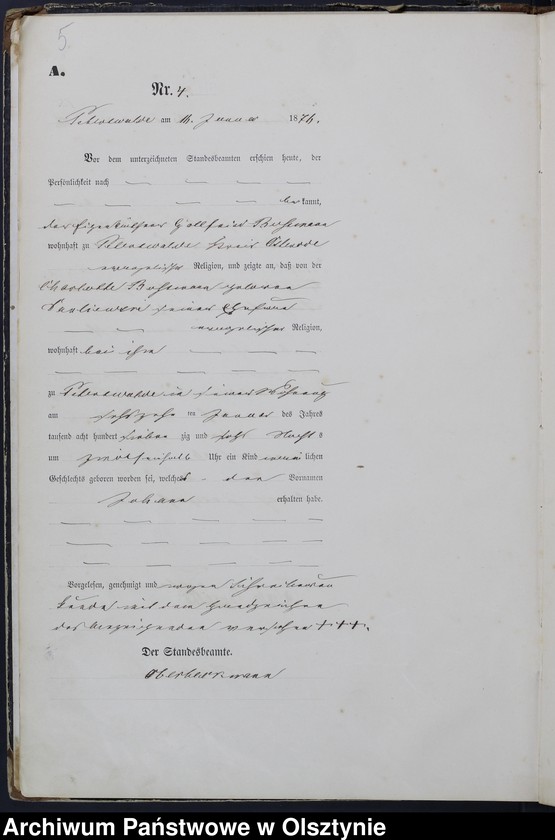 5.
A.
Nr. 4.
am 16. Januar 1876.
Vor dem unterzeichneten Standesbeamten erschien heute, der
Persönlichkeit nach
bekannt,
der Eigenkäthner Gottfried
wohnhaft zu Kreis Osterode
evangelischer Religion, und zeigte an, daß von der
Charlotte geborene
seiner Ehefrau
evangelischer Religion,
wohnhaft bei ihm
zu in seiner Wohnung
am sechszehnten Januar des Jahres
tausend acht hundert siebenzig und sechs Nachts
um Uhr ein Kind männlichen
Geschlechts geboren worden sei, welches den Vornamen
Johann erhalten habe.
Vorgelesen, genehmigt und wegen Schreibensun
kunde mit dem Handzeichen
des Anzeigenden versehen +++.
Der Standesbeamte.
Archiwum Państwowe w Olsztynie